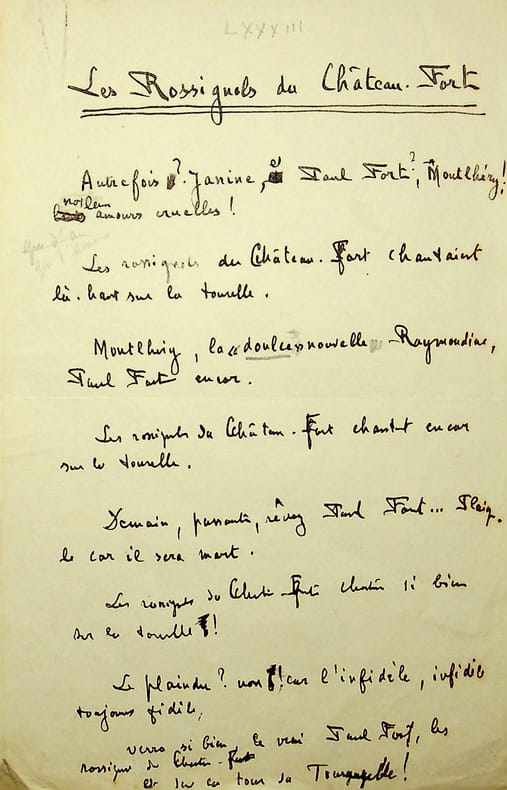 LXXXIII
Les Rossignols du Château-Fort
Autrefois ? Janine, è Paul Fort ?, Montlhéry !
amours cruelles !
Les rossignols du Château-Fort chantaient
là-haut sur la tourelle.
Montlhéry, la « doulce » nouvelle Raymondine,
Paul Fort encor.
Les rossignols du Château-Fort chantent encor
sur la tourelle.
Demain, passants, rêvez Paul Fort... Plaig.
le car il sera mort.
Les rossignols du Château-Fort chantaient si bien
sur la tourelle !
Le plaindre ? non ! car l'infidèle, infidèle
toujours fidèle,
verra si bien, le vrai Paul Fort, les
rossignols du Château-Fort
et sur sa tour sa !